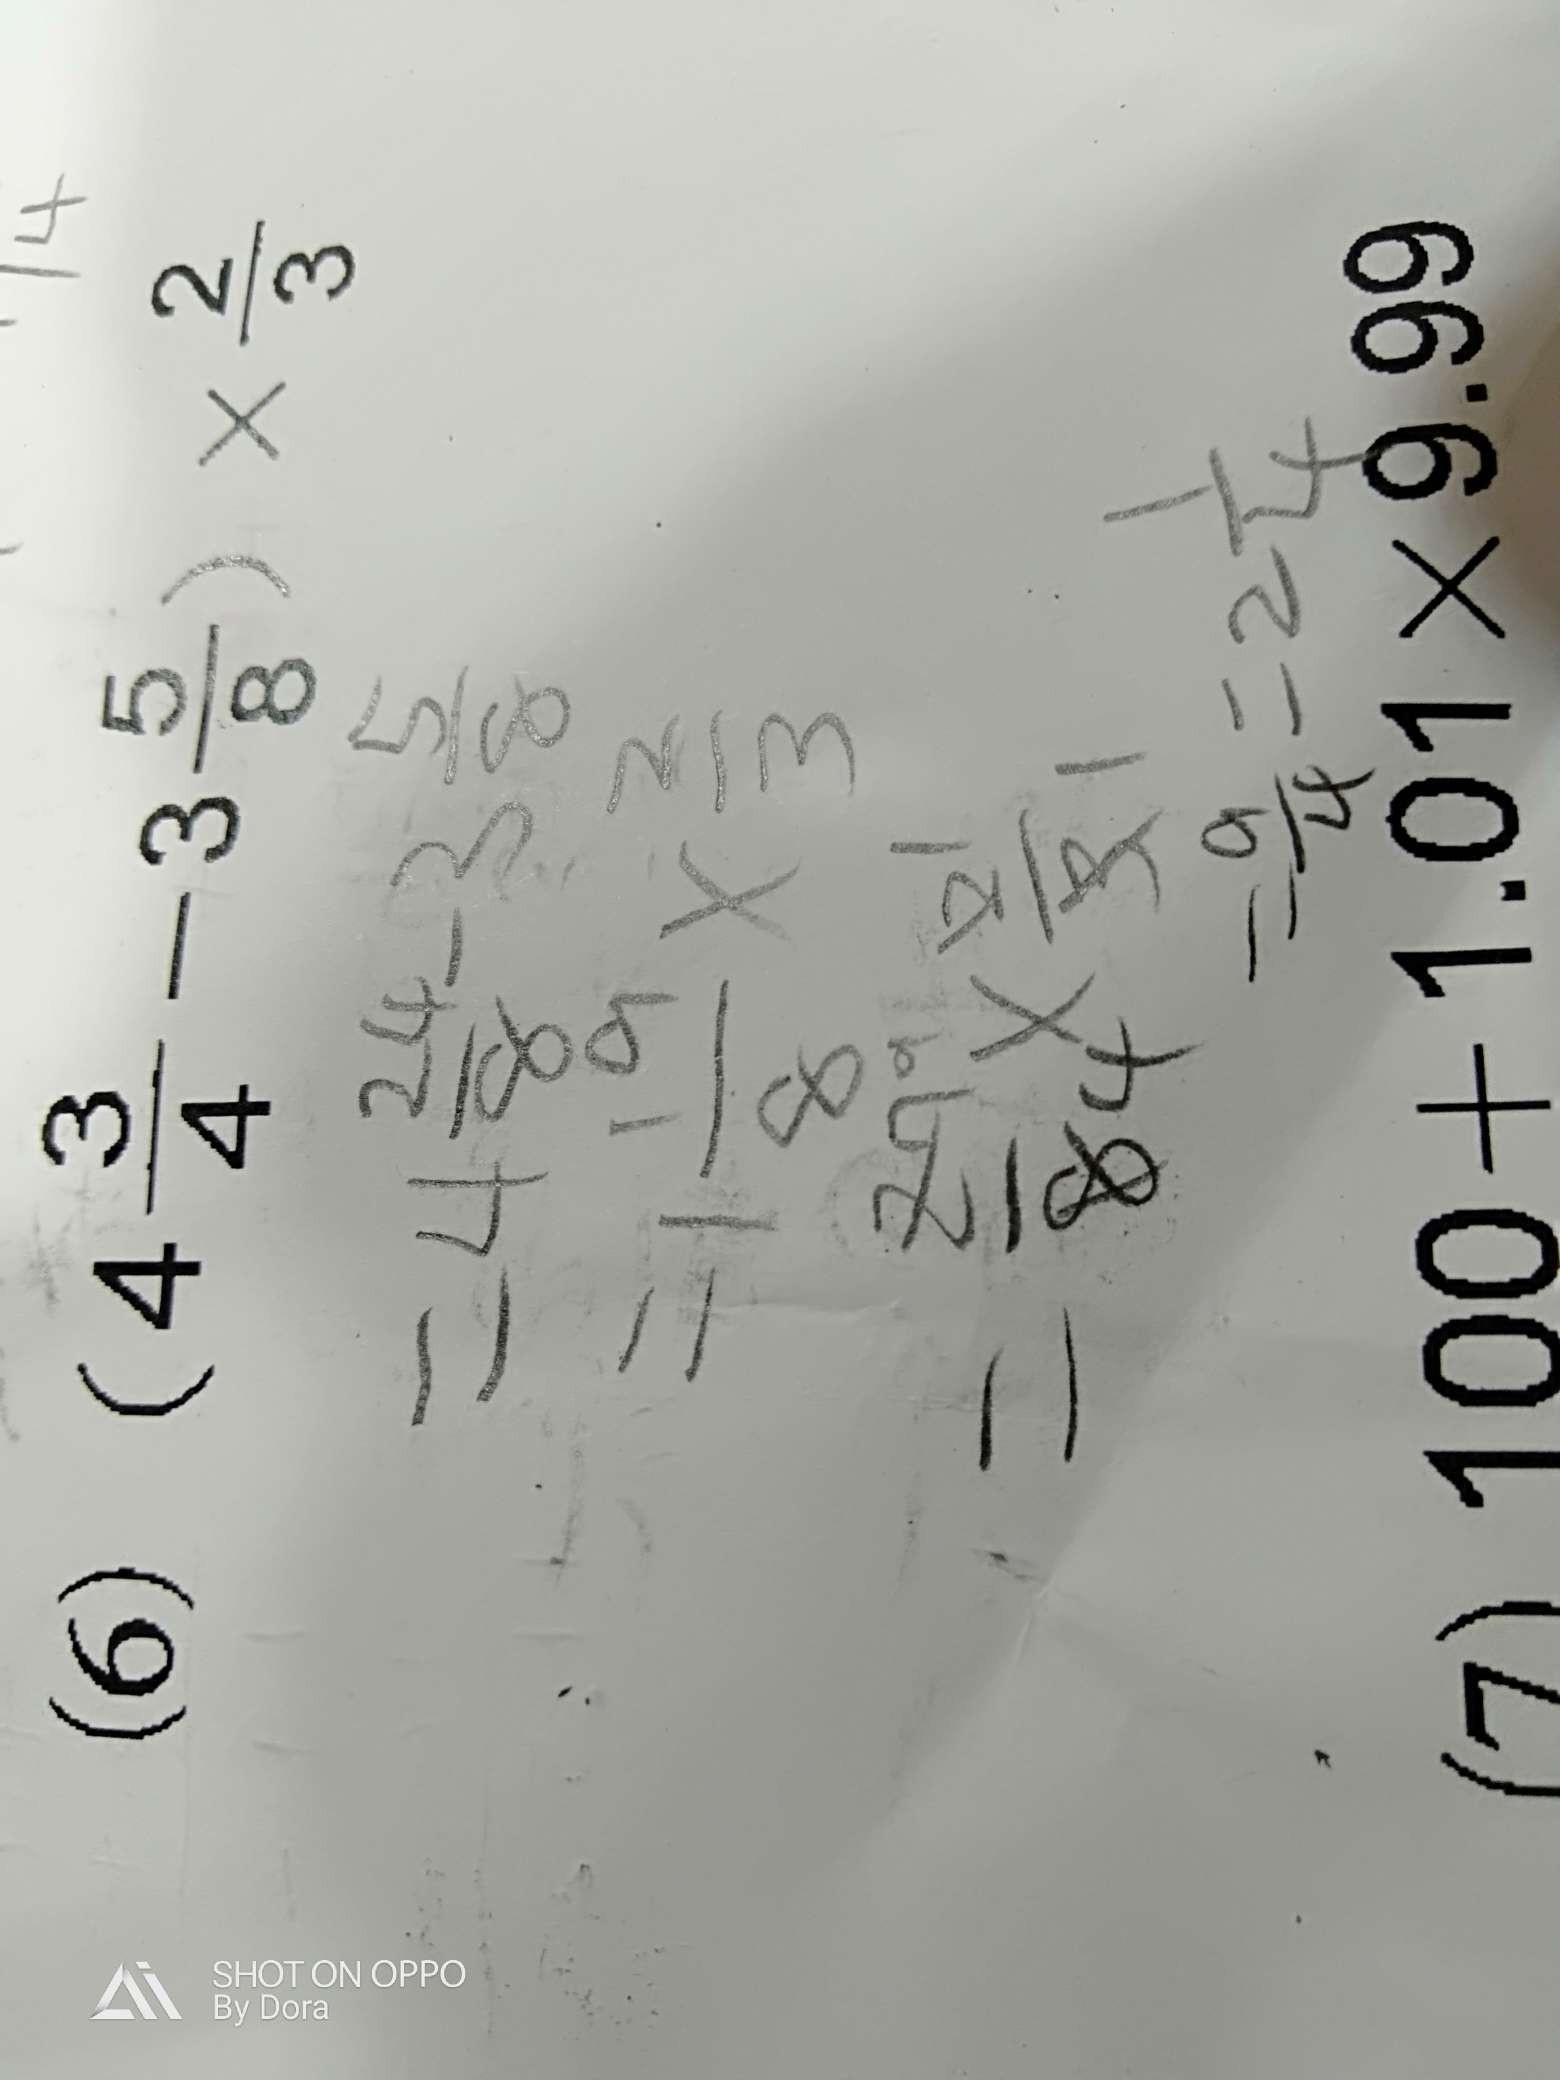 14
(6) (4 3/4 - 3 5/8) × 2/3
= 4 24/8 - 3 5/8
= 1 19/8 × 2/3
= 27 9/8 4 × 2 1/3 1
= 9/4 = 2 1/4
(7) 100 + 1.01 × 9.99
SHOT ON OPPO
By Dora